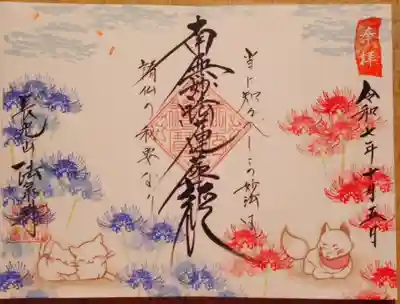 奉拝
令和七年十月五日
当に知るべしこの妙法は
南無妙法蓮華経
諸仏の秘要なり
長光山
法泉寺